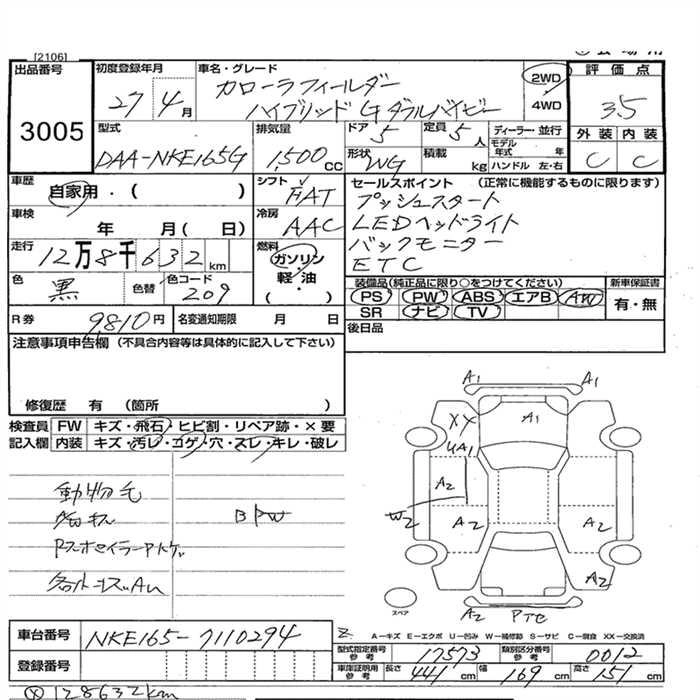 [2106]
出品番号
3005
初度登録年月
27年4月
車名・グレード
カローラフィールダー
ハイブリッド G ダブルバイビー
2WD
4WD
評価点
3.5
外装 内装
C C
型式
DAA-NKE165G
排気量
1,500 cc
ドア 5
形状 WG
定員 5人
積載 kg
ディーラー・並行
モデル年式 年
ハンドル 左・右
車歴
自家用・( )
シフト
FAT
車検
年 月( 日)
冷房
AAC
走行
12万8千632km
燃料
ガソリン
軽・油
・( )
色
黒
色替
色コード
209
セールスポイント (正常に機能するものに限ります)
プッシュスタート
LEDヘッドライト
バックモニター
ETC
装備品(純正品に限り○をつけてください)
PS PW ABS エアB AW
SR ナビ TV
新車保証書
有・無
R券 9810円
名変通知期限 月 日
後日品
注意事項申告欄 (不具合内容等は具体的に記入して下さい)
修復歴 有 (箇所 )
検査員記入欄
FW キズ・飛石・ヒビ割・リペア跡・×要
内装 キズ・汚レ・コゲ・穴・スレ・キレ・破レ
動物毛
B PW
A1 A1
XX A1
UA1
A2
W2
A2 A2
A2
A2 PTE
スペア
A−キズ E−エクボ U−凹み W−補修跡 S−サビ C−腐食 XX−交換済
車台番号
NKE165-7110294
登録番号
型式指定番号参考 17573
類別区分番号参考 0012
車庫証明用参考 長さ 441cm 幅 169cm 高さ 151cm
128632km